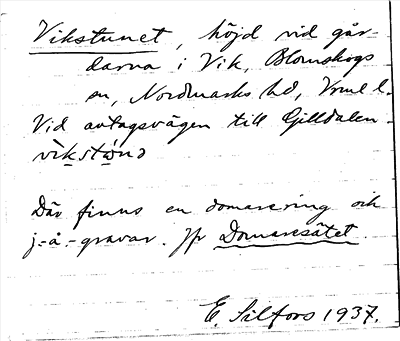 Vikstunet, höjd vid går-
darna i Vik, Blomskogs
sn, Nordmarks hd, Vrml l.
Vid avtagsvägen till Gilldalen
vikstönd
Där finns en domarering och
j.-å.-gravar. Jfr Domaresätet.
E. Silfors 1937.